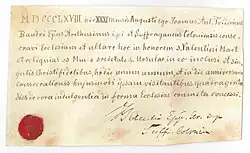 MDCCCLXVIII die XXX mensis Augusti ego Joannes Ant. Fridericus
Baudri Eppus Arethusinus et Suffraganeus Coloniensis conse-
cravi Ecclesiam et altare hoc in honorem s. Valentini Mart.
et reliquias ss. Mm. e societate s. Ursulae in eo inclusi et sin-
gulis Christi fidelibus, hodie unum annum et in die anniversario
consecrationis hujusmodi ipsam visitantibus quadraginta
dies de vera indulgentia in forma Ecclesiae consueta concessi.